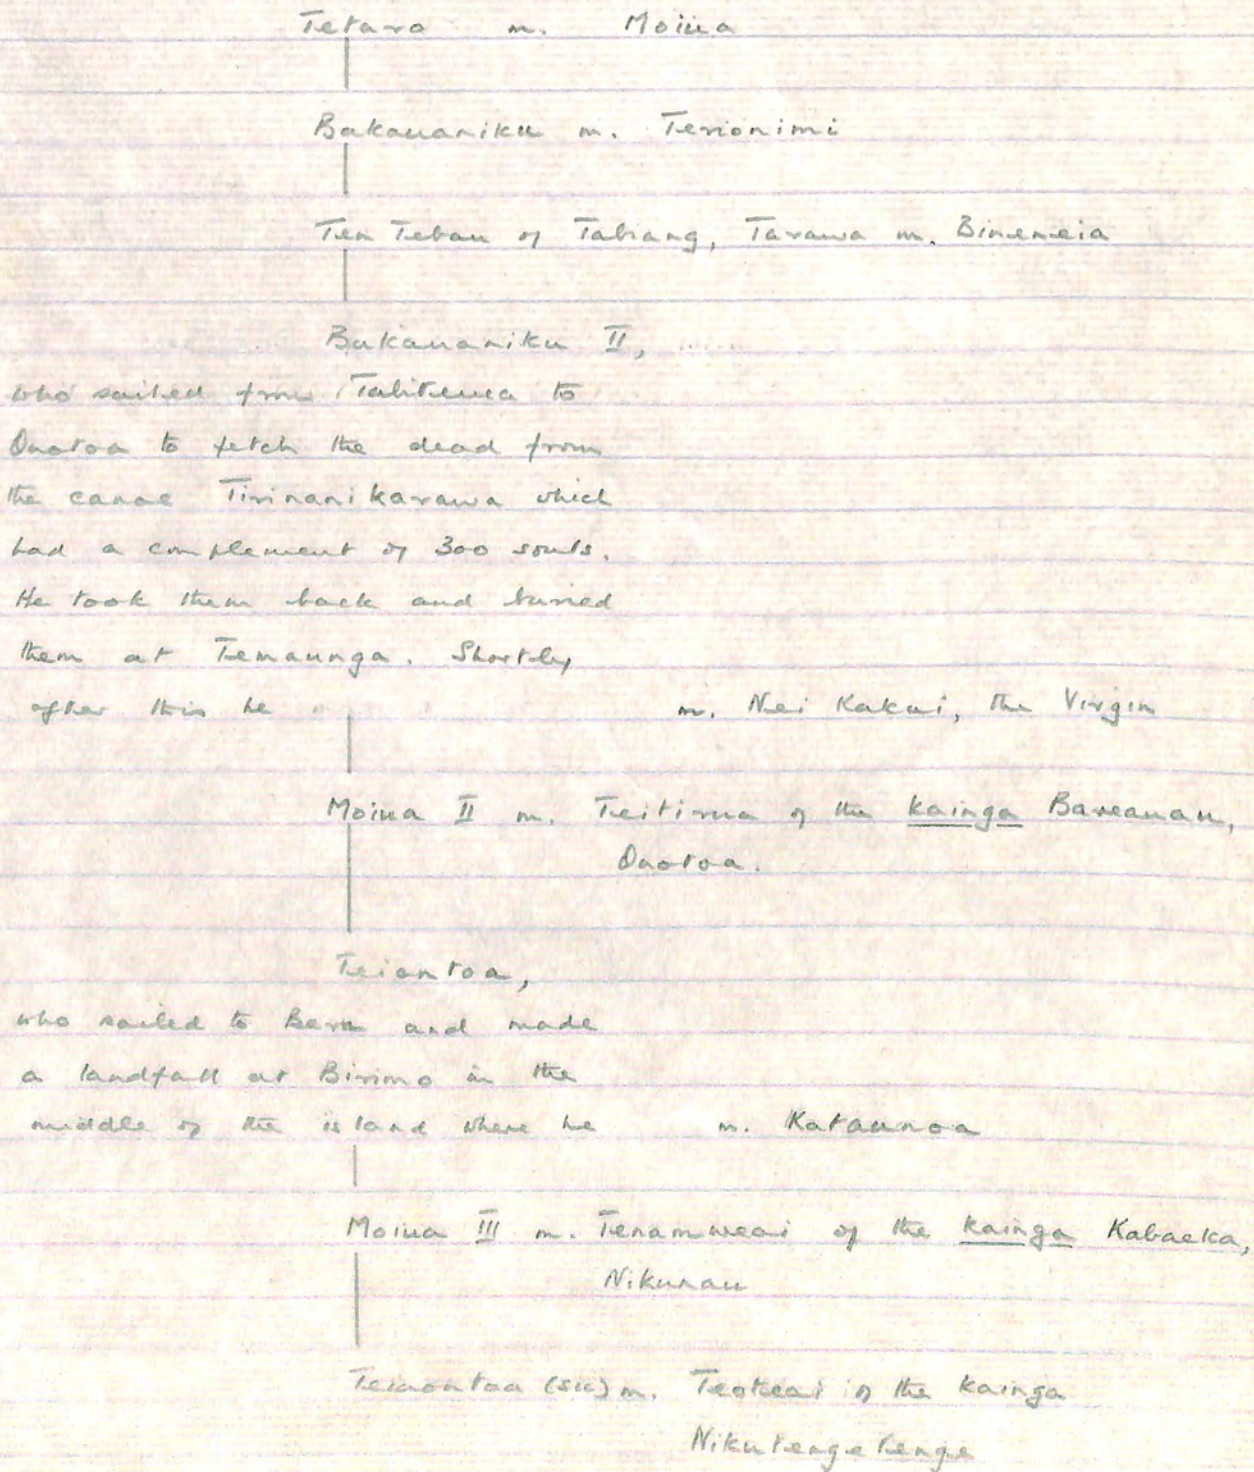 Tetaro m. Moiua
Bakauaniku m. Terionimi
Ten Tebau of Tabiang, Tarawa m. Binemeia
Bakauaniku II,
who sailed from Tabiteuea to
Onotoa to fetch the dead from
the canoe Tirinanikarawa which
had a complement of 300 souls.
He took them back and buried
them at Temaunga. Shortly
after this he m. Nei Kakui, the Virgin
Moiua II m. Teitirua of the kainga Bareauau,
Onotoa.
Teiontoa,
who sailed to Beru and made
a landfall at Birimo in the
middle of the island where he m. Kataunoa
Moiua III m. Tenamweai of the kainga Kabaeka,
Nikunau
Teiaontoa (sic) m. Teokeai of the kainga
Nikutengetenge